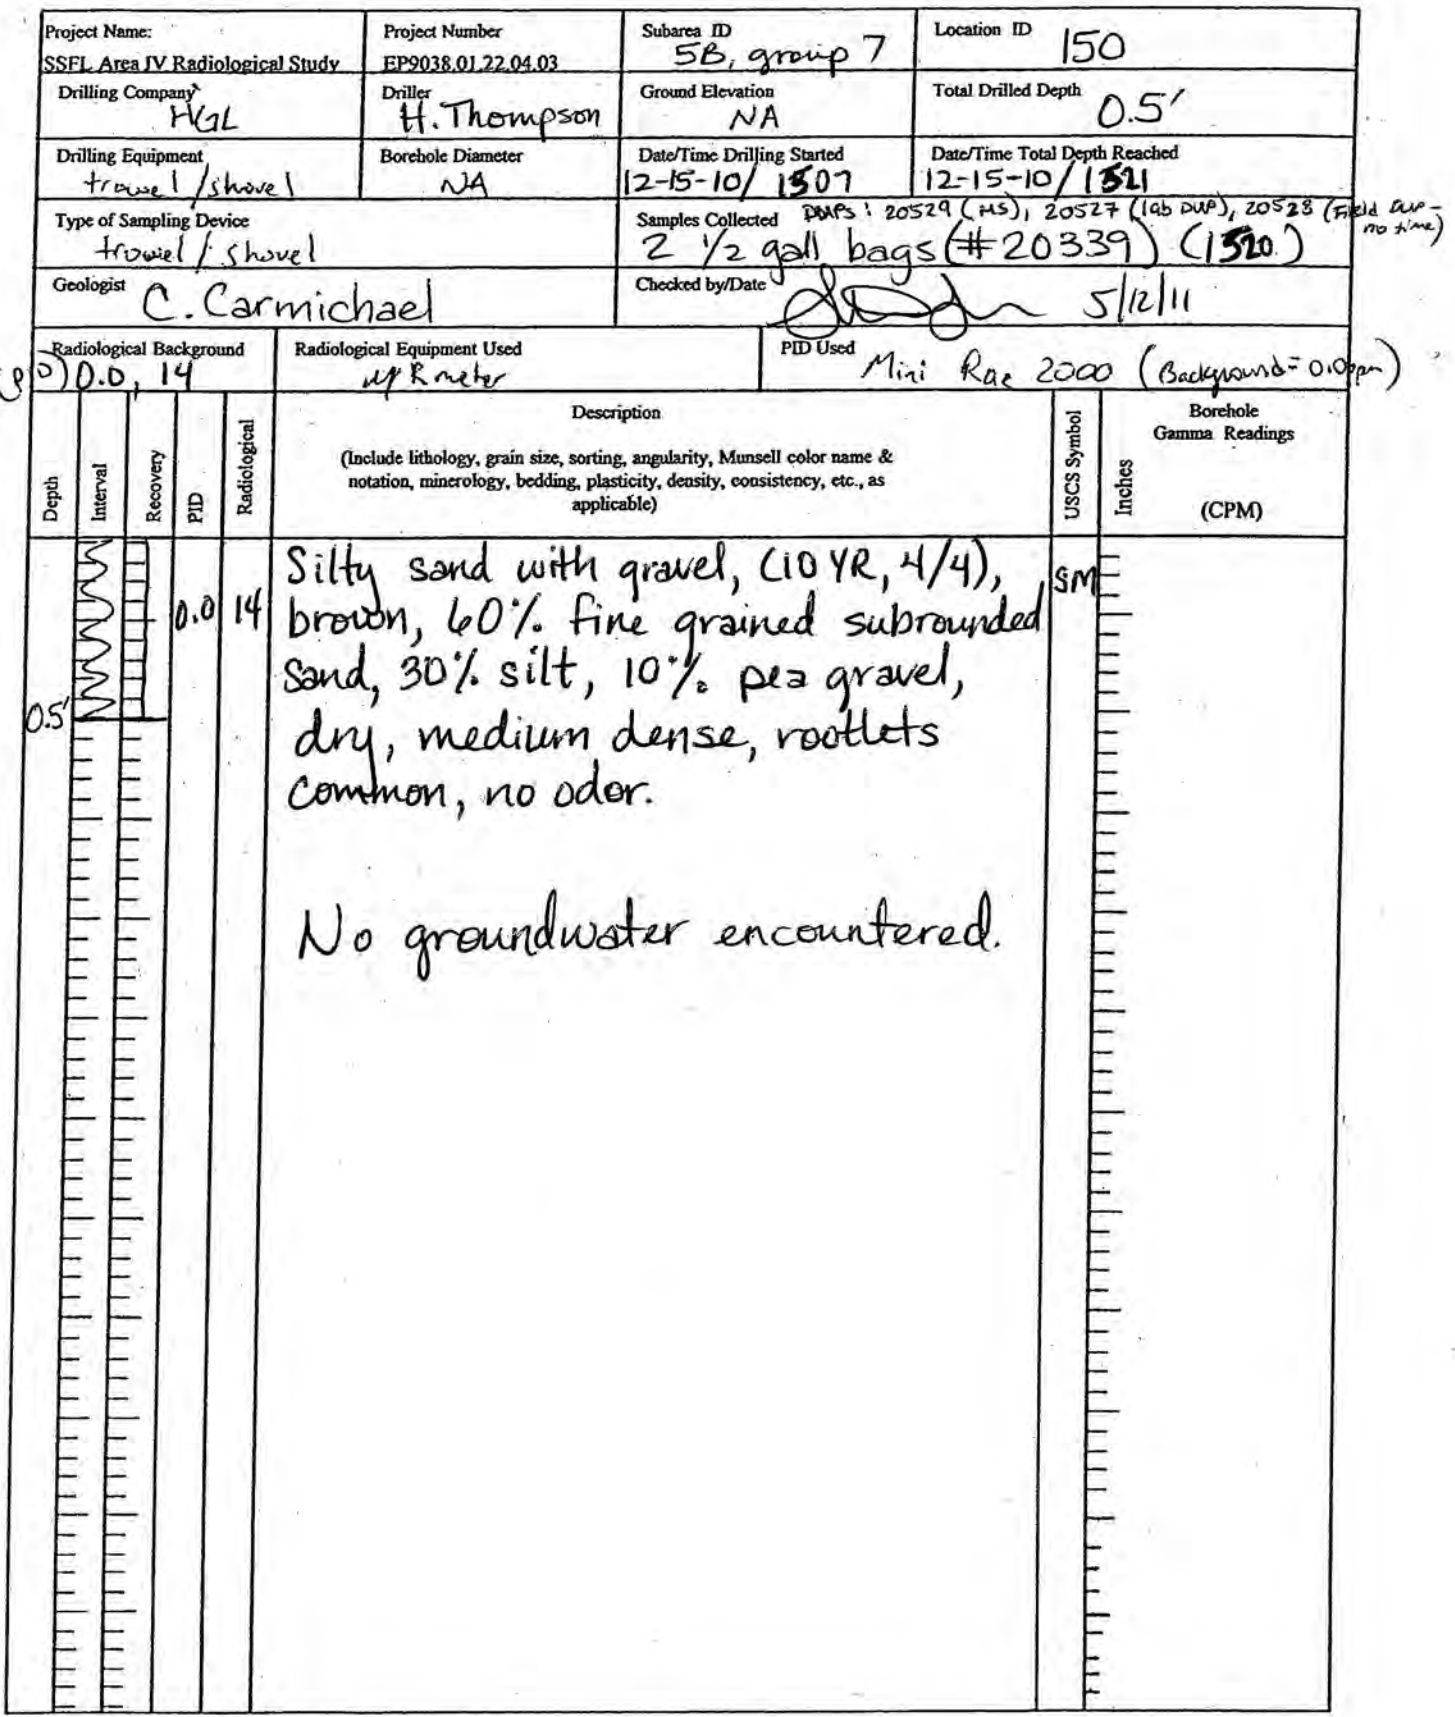 Project Name:
SSFL Area IV Radiological Study
Project Number
EP9038.01.22.04.03
Subarea ID
5B, group 7
Location ID
150
Drilling Company
HGL
Driller
H. Thompson
Ground Elevation
NA
Total Drilled Depth
0.5'
Drilling Equipment
trowel / shovel
Borehole Diameter
NA
Date/Time Drilling Started
12-15-10/ 1507
Date/Time Total Depth Reached
12-15-10/1521
Type of Sampling Device
trowel / shovel
Samples Collected
DUPS: 20529 (MS), 20527 (lab DUP), 20528 (Field Dup-
no time)
2 1/2 gall bags (#20339) (1520)
Geologist
C. Carmichael
Checked by/Date
5/12/11
Radiological Background
0.0, 14
Radiological Equipment Used
R meter
PID Used
Mini Rae 2000 (Background = 0.0ppm)
Depth
Interval
Recovery
PID
Radiological
Description
(Include lithology, grain size, sorting, angularity, Munsell color name &
notation, minerology, bedding, plasticity, density, consistency, etc., as
applicable)
USCS Symbol
Inches
Borehole
Gamma Readings
(CPM)
0.5'
0.0
14
Silty sand with gravel, (10 YR, 4/4),
brown, 60% fine grained subrounded
sand, 30% silt, 10% pea gravel,
dry, medium dense, rootlets
common, no odor.
No groundwater encountered.
SM